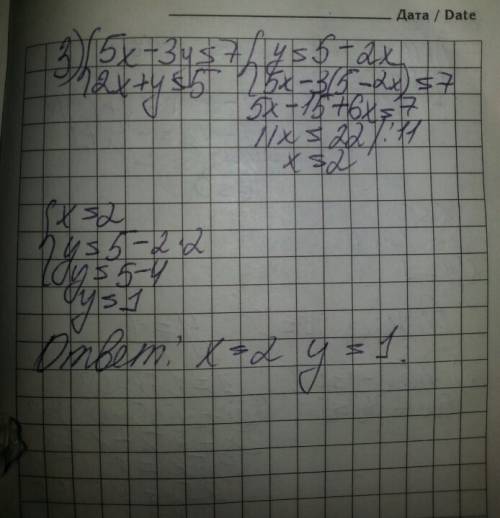 Дата / Date
3) { 5x - 3y = 7
{ 2x + y = 5
{ y = 5 - 2x
{ 5x - 3(5 - 2x) = 7
5x - 15 + 6x = 7
11x = 22 /:11
x = 2
{ x = 2
{ y = 5 - 2·2
y = 5 - 4
y = 1
Ответ: x = 2 y = 1.